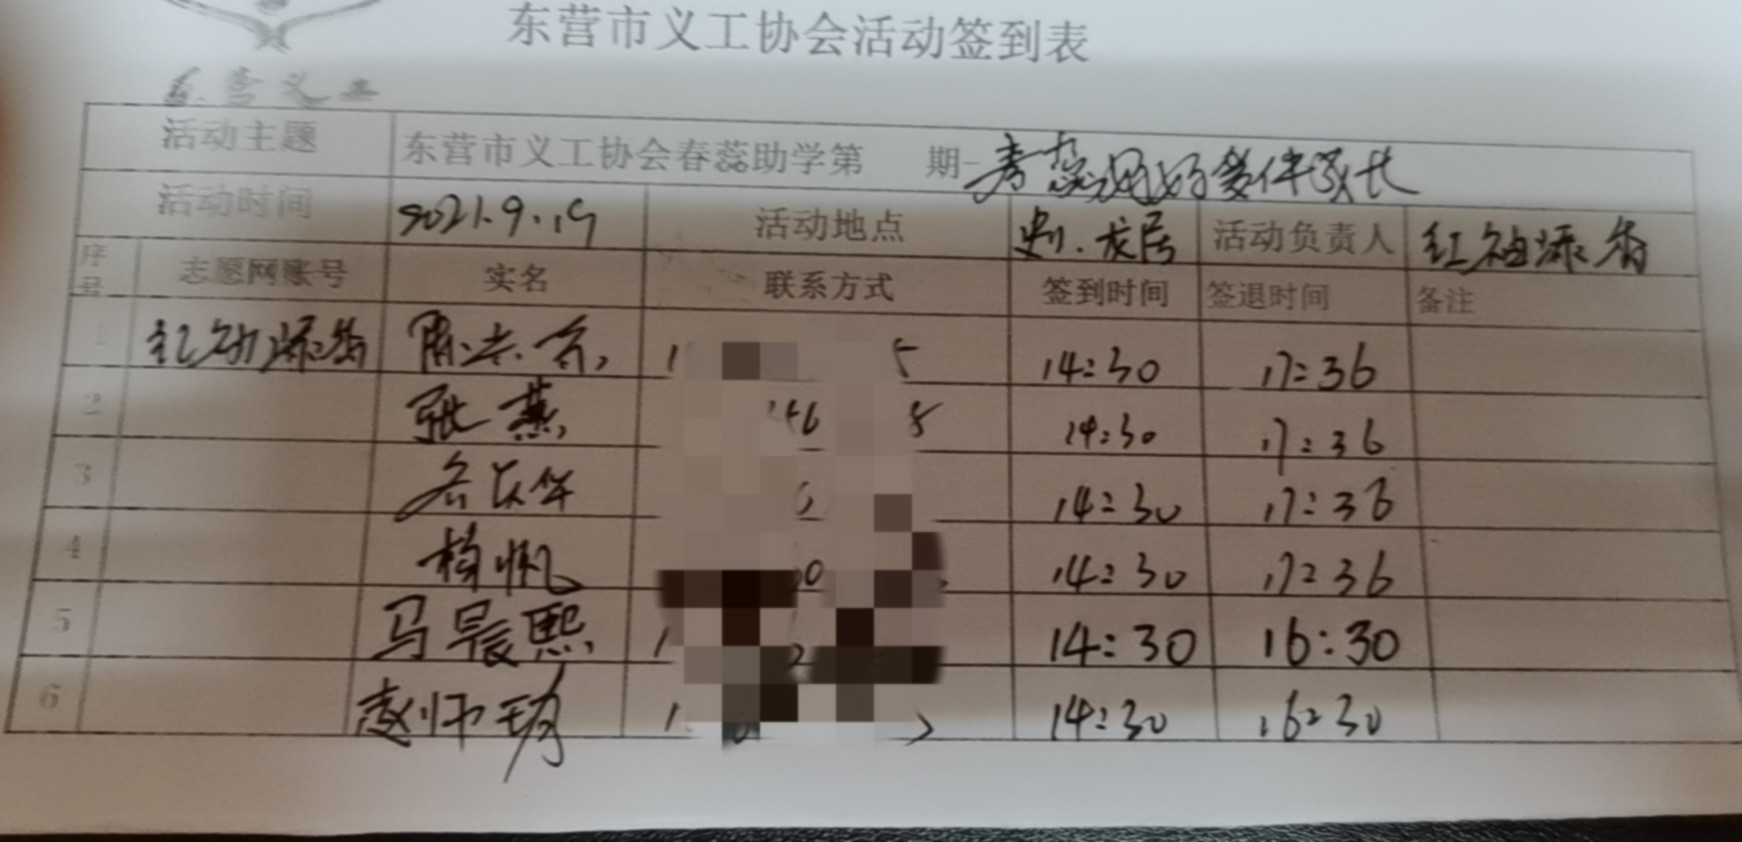 东营市义工协会活动签到表
东营义工
活动主题 东营市义工协会春蕊助学第 期-春蕊
活动时间 2021.9.19 活动地点 龙居 活动负责人 红袖添香
序号 志愿网账号 实名 联系方式 签到时间 签退时间 备注
1 红袖添香 14:30 17:36
2 张燕 14:30 17:36
3 14:30 17:36
4 杨帆 14:30 17:36
5 马晨熙 14:30 16:30
6 赵师 14:30 16:30